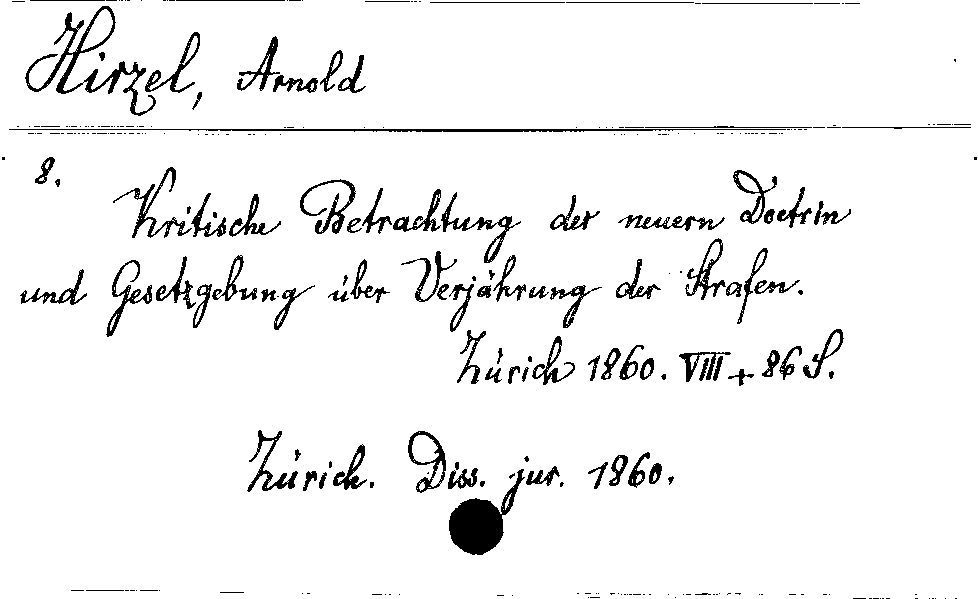 Hirzel, Arnold
8.
Kritische Betrachtung der neuern Doctrin
und Gesetzgebung über Verjährung der Strafen.
Zürich 1860. VIII + 86 S.
Zürich. Diss. jur. 1860.